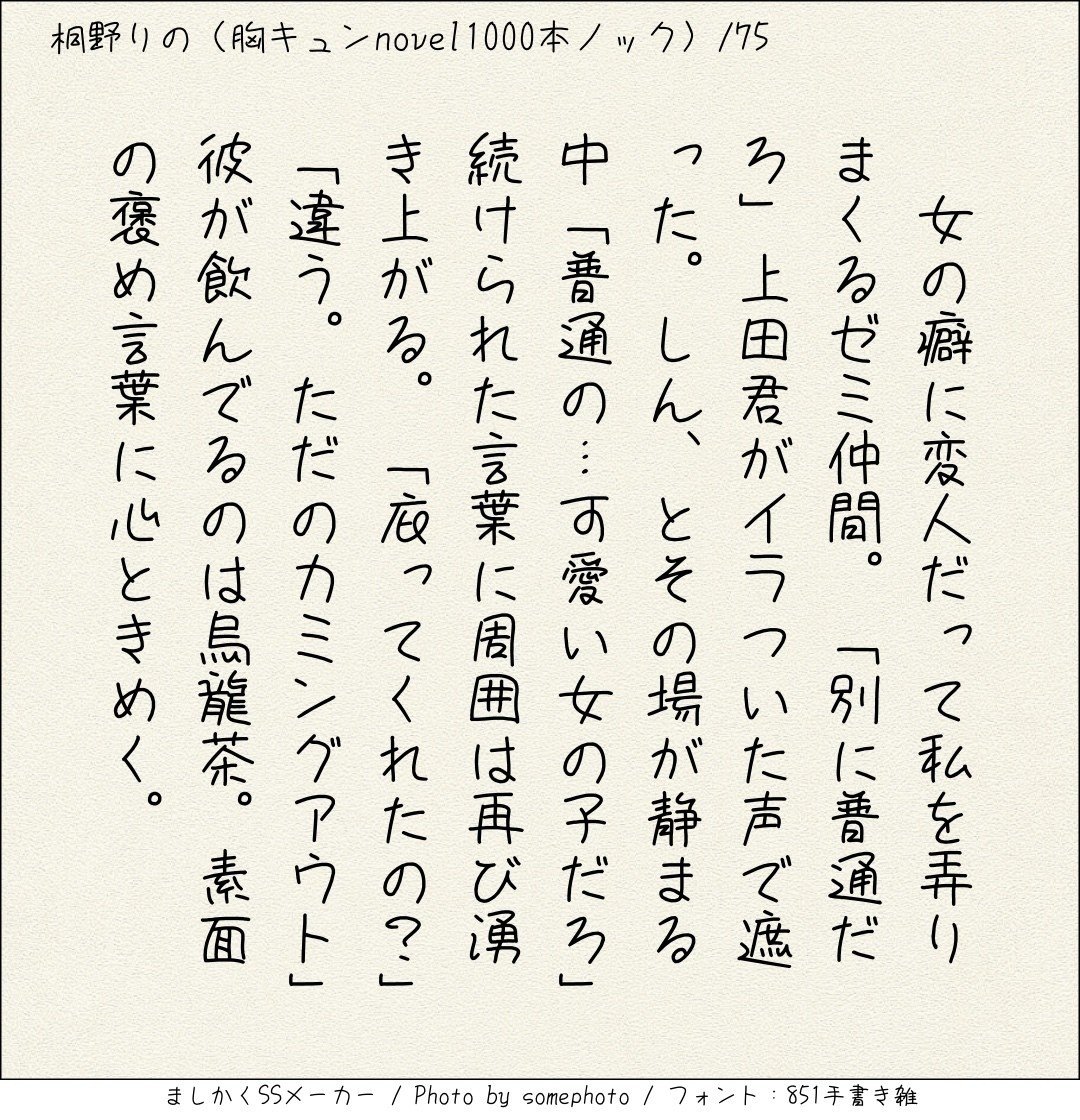 桐野りの（胸キュンnovel1000本ノック）/75
女の癖に変人だって私を弄り
まくるゼミ仲間。　「別に普通だ
ろ」上田君がイラついた声で遮
った。しん、とその場が静まる
中「普通の…可愛い女の子だろ」
続けられた言葉に周囲は再び湧
き上がる。　「庇ってくれたの？」
「違う。ただのカミングアウト」
彼が飲んでるのは烏龍茶。素面
の褒め言葉に心ときめく。
ましかくSSメーカー / Photo by somephoto / フォント：851手書き雑